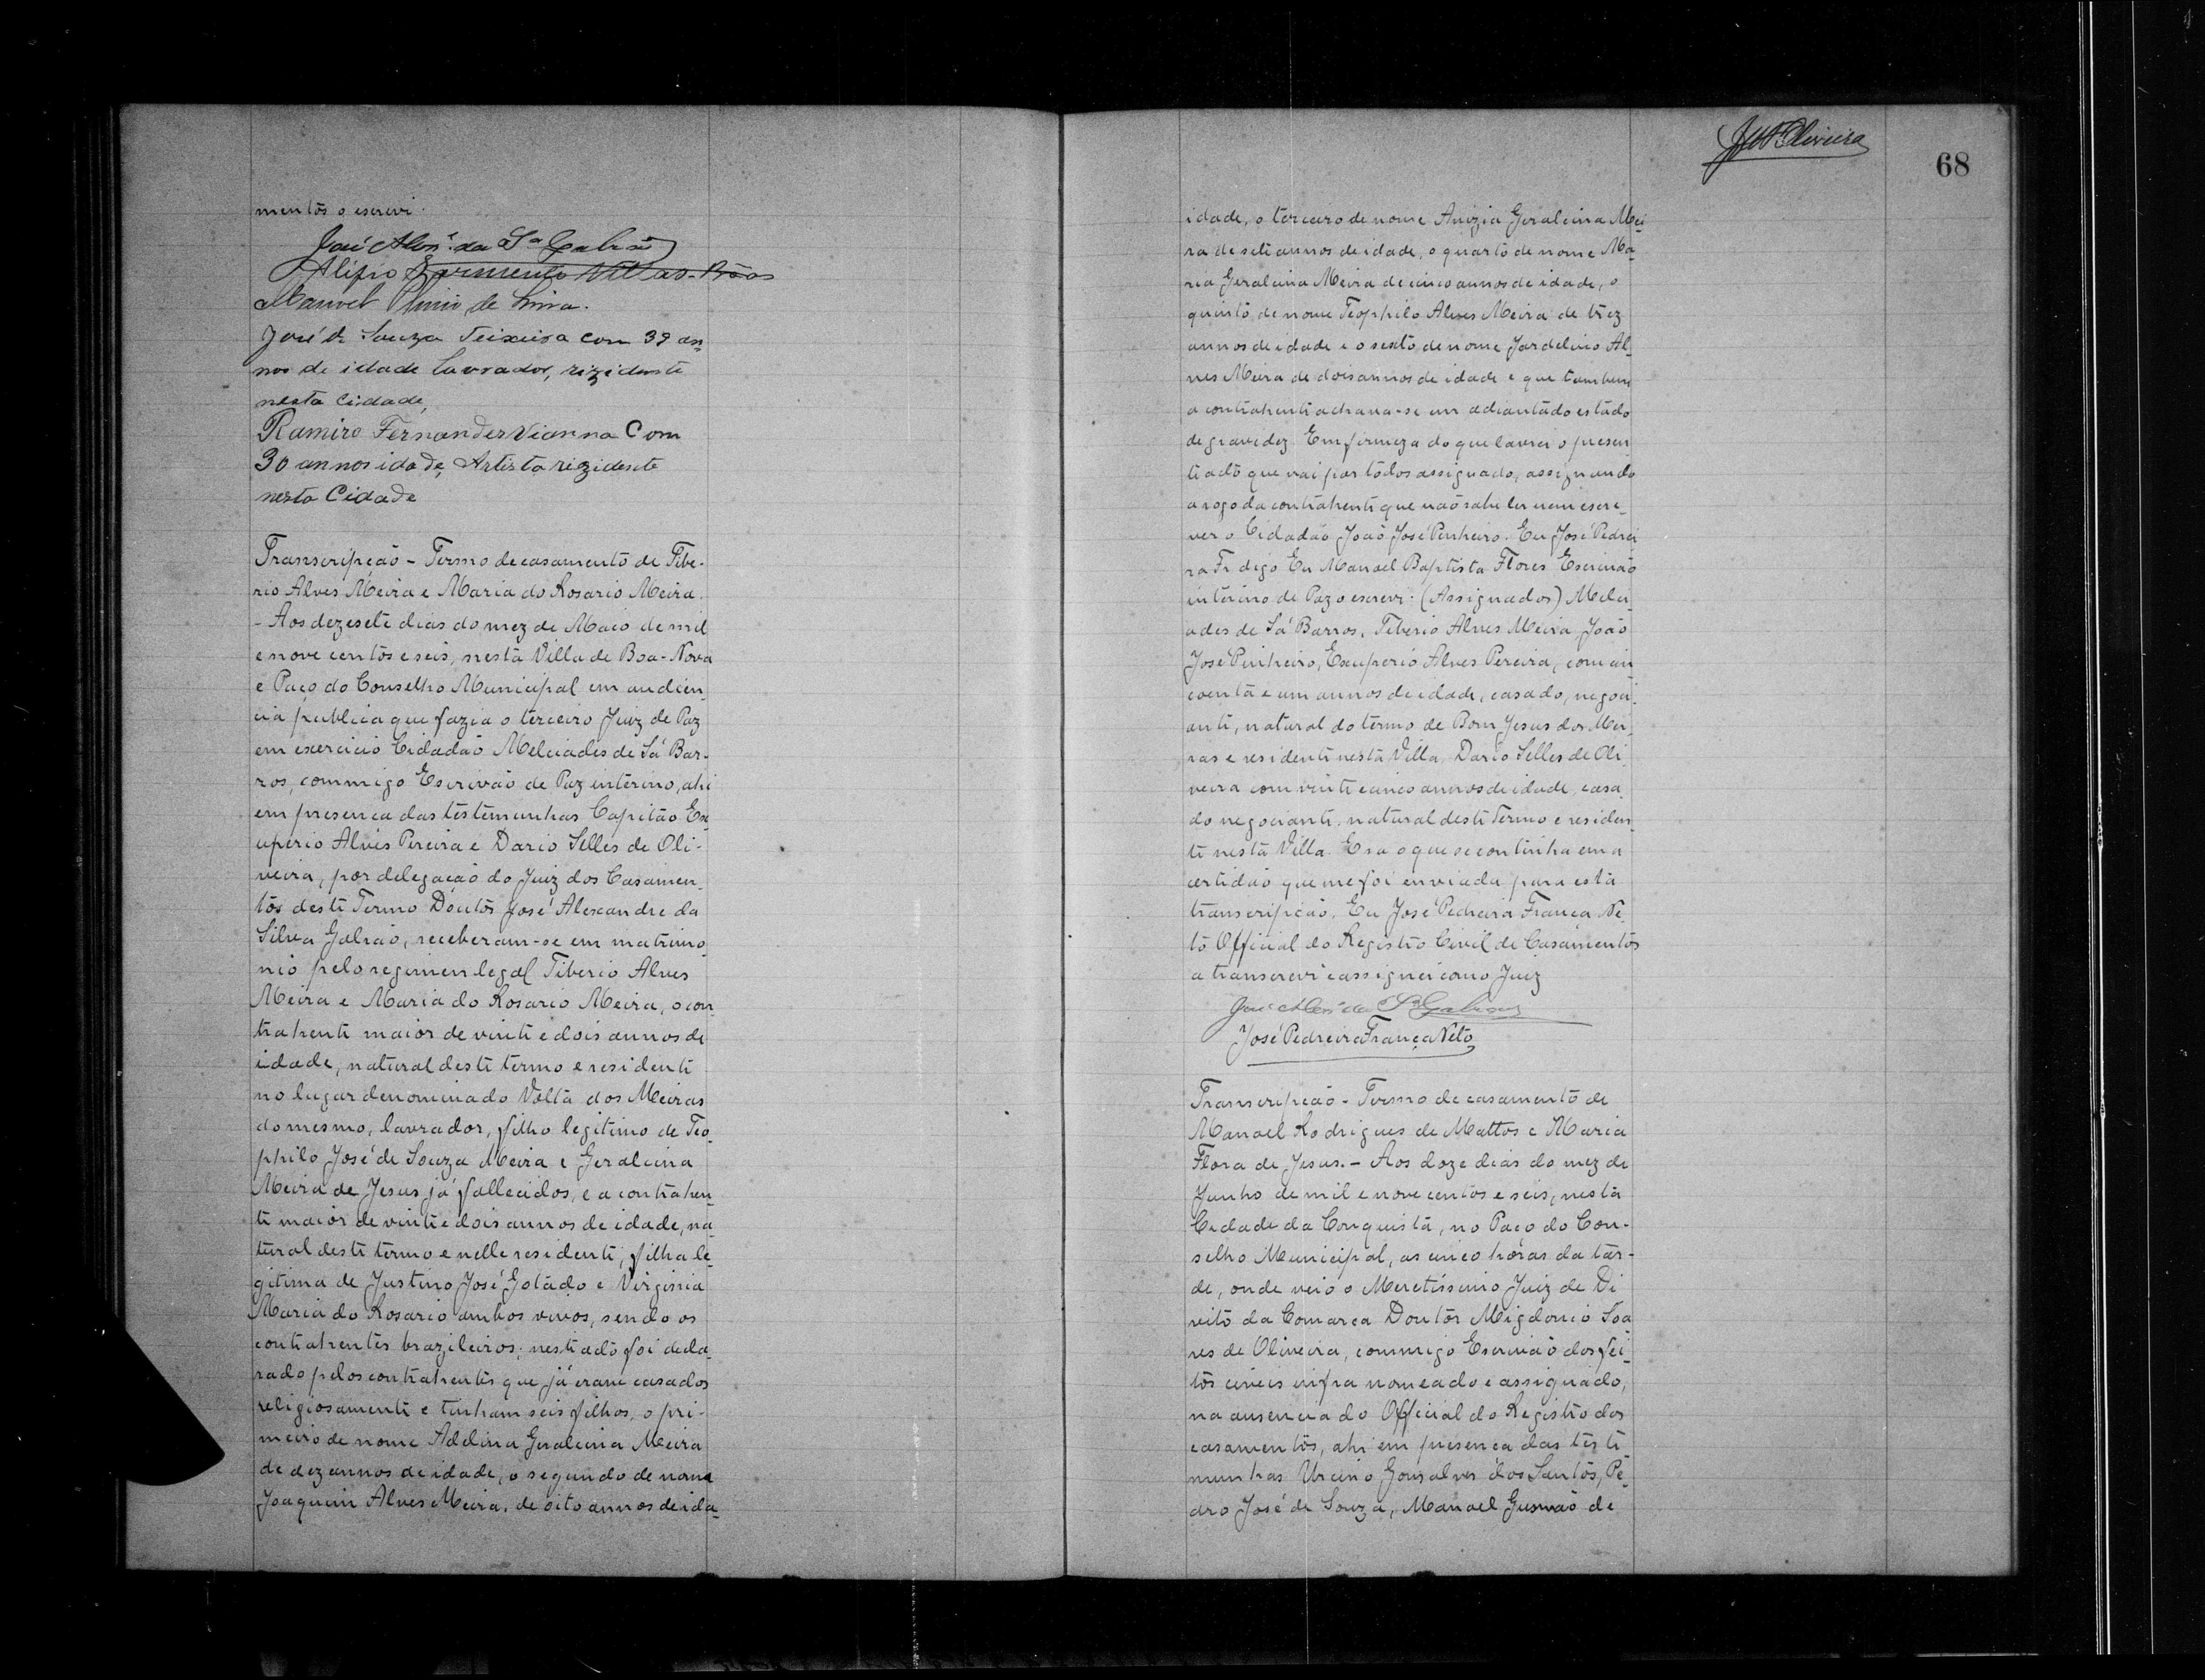 mentos o escrevi.
José Alexe. da Sa Galvão
Alipio Sarmento Villas-Bôas
Manoel Plinio de Lima.
José de Souza Teixeira com 39 an-
nos de idade lavrador, rizidente
nesta cidade,
Ramiro Fernandes Vianna Com
30 annos idade, Artista rizidente
nesta Cidade
Transcripção - Termo de casamento de Tibe-
rio Alves Meira e Maria do Rosario Meira.
- Aos dezesete dias do mez de Maio de mil
e nove centos e seis, nesta Villa de Boa-Nova
e Paço do Conselho Municipal em audien-
cia publica que fazia o terceiro Juiz de Paz
em exercicio Cidadão Melciades de Sá Bar-
ros, commigo Escrivão de Paz interino, ahi
em presença das testemunhas Capitão Ex-
uperio Alves Pereira e Dario Selles de Oli-
veira, por delegação do Juiz dos Casamen-
tos deste Termo Doutor José Alexandre da
Silva Galvão, receberam-se em matrimo-
nio pelo regimen legal Tiberio Alves
Meira e Maria do Rosario Meira, o con-
trahente maior de vinte e dois annos de
idade, natural deste termo e residente
no lugar denominado Volta dos Meiras
do mesmo, lavrador, filho legitimo de Teo-
philo José de Souza Meira e Geralcina
Meira de Jesus já fallecidos, e a contrahen-
te maior de vinte e dois annos de idade, na-
tural deste termo e nelle residente, filha le-
gitima de Justino José Gotado e Virginia
Maria do Rosario ambos vivos, sendo os
contrahentes brazileiros; neste acto foi decla-
rado pelos contrahentes que já eram casados
religiosamente e tinham seis filhos, o pri-
meiro de nome Adelina Geralcina Meira
de dez annos de idade, o segundo de nome
Joaquim Alves Meira, de oito annos de ida-
J M S Oliveira
68
idade, o terceiro de nome Anizia Geralcina Mei-
ra de sete annos de idade, o quarto de nome Ma-
ria Geralcina Meira de cinco annos de idade, o
quinto de nome Teophilo Alves Meira de trez
annos de idade e o sexto de nome Jardelino Al-
ves Meira de dois annos de idade e que tambem
a contrahente achava-se em adiantado estado
de gravidez. Em firmeza do que lavrei o presen-
te acto que vai por todos assignado, assignando
a rogo da contrahente que não sabe ler nem escre-
ver o Cidadão João José Pinheiro. Eu José Pedrei-
ra Fr digo Eu Manoel Baptista Flores Escrivão
interino de Paz o escrevi. (Assignados) Melci-
ades de Sá Barros, Tiberio Alves Meira João
José Pinheiro, Exuperio Alves Pereira, com cin-
coenta e um annos de idade, casado, negoci-
ante, natural do termo de Bom Jesus dos Mei-
ras e residente nesta Villa. Dario Selles de Oli
veira com vinte e cinco annos de idade, casa-
do negociante, natural deste Termo e residen-
te nesta Villa. Era o que se continha em a
certidão que me foi enviada para esta
transcripção. Eu José Pedreira França Ne-
to Official do Registro Civil de Casamentos
a transcrevi e assignei como Juiz
José Alexe da Sa Galvão
José Pedreira França Neto
Transcripção - Termo de casamento de
Manoel Rodrigues de Mattos e Maria
Flora de Jesus. - Aos doze dias do mez de
Junho de mil e nove centos e seis, nesta
Cidade da Conquista, no Paço do Con-
selho Municipal, as cinco horas da tar-
de, onde veio o Meretissimo Juiz de Di
reito da Comarca Doutor Migdonio Soa
res de Oliveira, commigo Escrivão dos fei-
tos civeis infra nomeado e assignado,
na ausencia do Official do Registro dos
casamentos, ahi em presença das teste-
munhas Urcino Gonsalves dos Santos, Pe-
dro José de Souza, Manoel Gusmão de